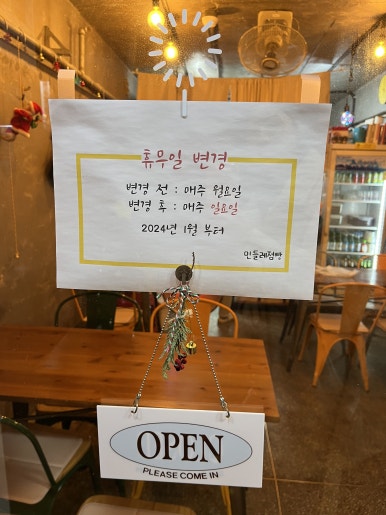 휴무일 변경
변경 전 : 매주 월요일
변경 후 : 매주 일요일
2024년 1월 부터
민들레점빵
OPEN
PLEASE COME IN